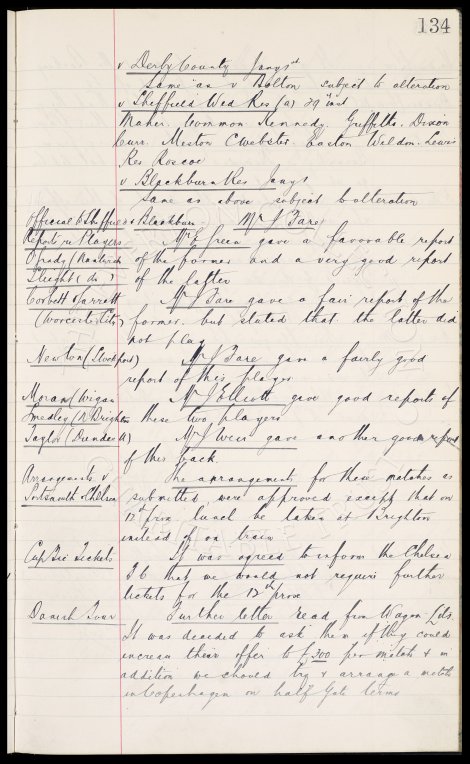 134
v Derby County Jany 1st
Same as v Bolton subject to alteration
v Sheffield Wed Res (a) 29 inst
Maher, Common Kennedy. Griffiths. Dixon
Curr. Meston C Webster. Easton Waldon. Lewis
Res Roscoe
v Blackburn Res Jany
Same as above subject to alteration
Official to Sheffield & Blackburn. Mr J Fare
Reports re Players Mr E Green gave a favorable report
O'Grady (Nantwich of the former and a very good report
Sleight (do) of the latter
Corbett & Jarratt Mr Fare gave a fair report of the
(Worcester City) former, but stated that the latter did
not play
Newton (Stockport) Mr J Fare gave a fairly good
report of this player
Moran (Wigan Mr J Elliott gave good reports of
Smedley (N. Brighton these two players
Taylor (Dundee A) Mr J Weir gave another good report
of this back
Arrangements v The arrangements for these matches as
Portsmouth & Chelsea submitted, were approved except that on
12th prox, lunch be taken at Brighton
instead of on train
Cup Tie Tickets It was agreed to inform the Chelsea
F C that we would not require further
tickets for the 12th prox
Danish Tour Further letter read from Wagon Lits.
It was decided to ask them if they could
increase their offer to £300 per match & in
addition we should try & arrange a match
in Copenhagen on half Gate terms